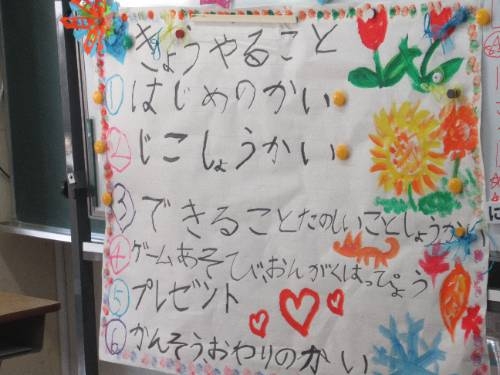 きょうやること
① はじめのかい
② じこしょうかい
③ できることたのしいことしょうかい
④ ゲームあそび、おんがくはっぴょう
⑤ プレゼント
⑥ かんそうおわりのかい